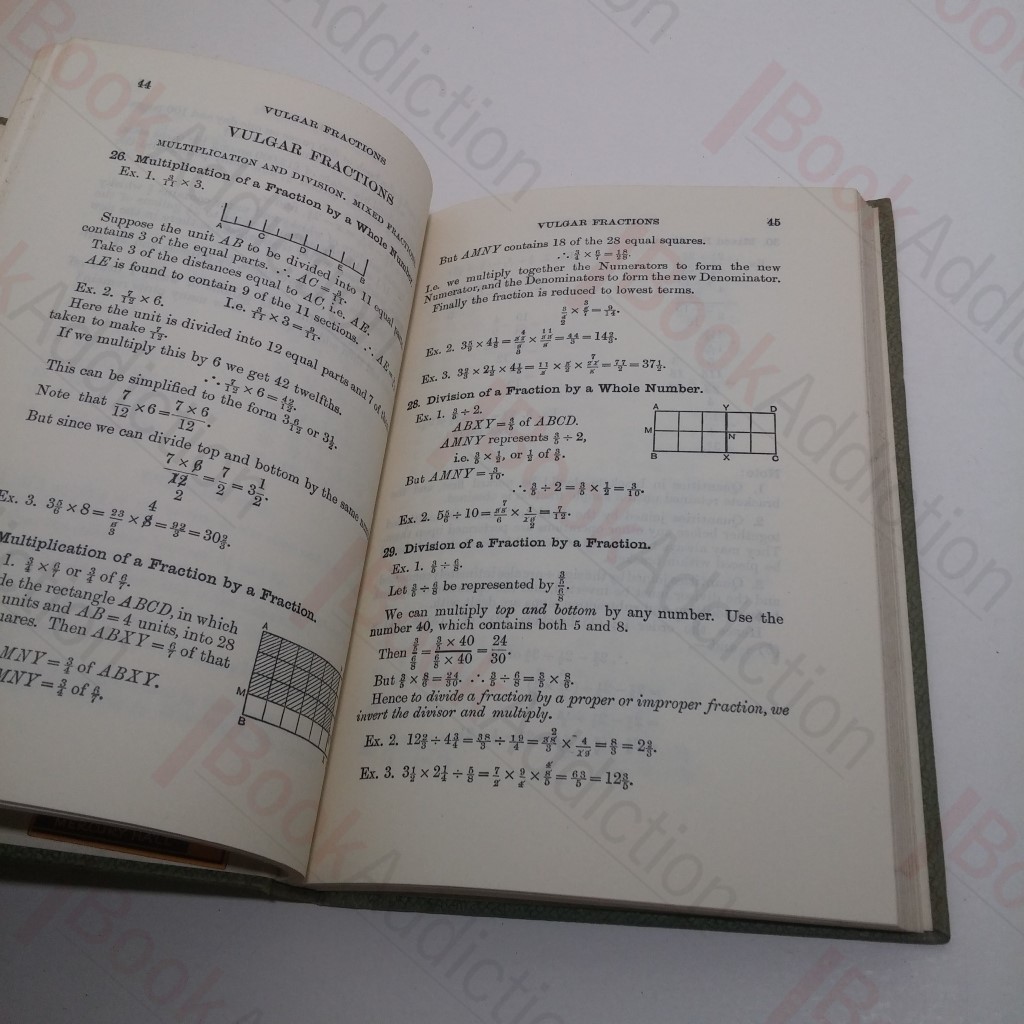 44
VULGAR FRACTIONS
VULGAR FRACTIONS
MULTIPLICATION AND DIVISION. MIXED FRACTIONS
26. Multiplication of a Fraction by a Whole Number.
Ex. 1. 3/11 × 3.
A C D E B
Suppose the unit AB to be divided into 11 equal
contains 3 of the equal parts. ∴ AC = 3/11.
Take 3 of the distances equal to AC, i.e. AE.
AE is found to contain 9 of the 11 sections. ∴ AE =
I.e. 3/11 × 3 = 9/11.
Ex. 2. 7/12 × 6.
Here the unit is divided into 12 equal parts and 7 of
taken to make 7/12.
If we multiply this by 6 we get 42 twelfths.
∴ 7/12 × 6 = 42/12.
This can be simplified to the form 3 6/12 or 3 1/2.
Note that 7/12 × 6 = 7 × 6/12.
But since we can divide top and bottom by the same
7 × 6/12 = 7/2 = 3 1/2.
2
Ex. 3. 3 5/6 × 8 = 23/6 × 8 = 92/3 = 30 2/3.
3 4
Multiplication of a Fraction by a Fraction.
1. 3/4 × 6/7 or 3/4 of 6/7.
de the rectangle ABCD, in which
units and AB = 4 units, into 28
uares. Then ABXY = 6/7 of that
MNY = 3/4 of ABXY.
MNY = 3/4 of 6/7.
A
M
B
VULGAR FRACTIONS 45
But AMNY contains 18 of the 28 equal squares.
∴ 3/4 × 6/7 = 18/28.
I.e. we multiply together the Numerators to form the new
Numerator, and the Denominators to form the new Denominator.
Finally the fraction is reduced to lowest terms.
3/4 × 6/7 = 9/14.
Ex. 2. 3 5/9 × 4 1/8 = = 44/3 = 14 2/3.
Ex. 3. = 37 1/2.
28. Division of a Fraction by a Whole Number.
Ex. 1. 3/5 ÷ 2.
ABXY = 3/5 of ABCD.
AMNY represents 3/5 ÷ 2,
i.e. 3/5 × 1/2, or 1/2 of 3/5.
A Y D
M N
B X C
But AMNY = 3/10.
∴ 3/5 ÷ 2 = 3/5 × 1/2 = 3/10.
Ex. 2. 5 5/6 ÷ 10 = 35/6 × 1/10 = 7/12.
29. Division of a Fraction by a Fraction.
Ex. 1. 3/5 ÷ 6/8.
Let 3/5 ÷ 6/8 be represented by
We can multiply top and bottom by any number. Use the
number 40, which contains both 5 and 8.
Then 3/5 / 6/8 = 3/5 × 40 / 6/8 × 40 = 24/30.
But 3/5 × 8/6 = 24/30. ∴ 3/5 ÷ 6/8 = 3/5 × 8/6.
Hence to divide a fraction by a proper or improper fraction, we
invert the divisor and multiply.
Ex. 2. 12 2/3 ÷ 4 3/4 = 38/3 ÷ 19/4 = 38/3 × 4/19 = 8/3 = 2 2/3.
Ex. 3. 3 1/2 × 2 1/4 ÷ 5/8 = 7/2 × 9/4 × 8/5 = 63/5 = 12 3/5.
BookAddiction
BookAddiction
BookAddiction
BookAddiction
BookAddiction